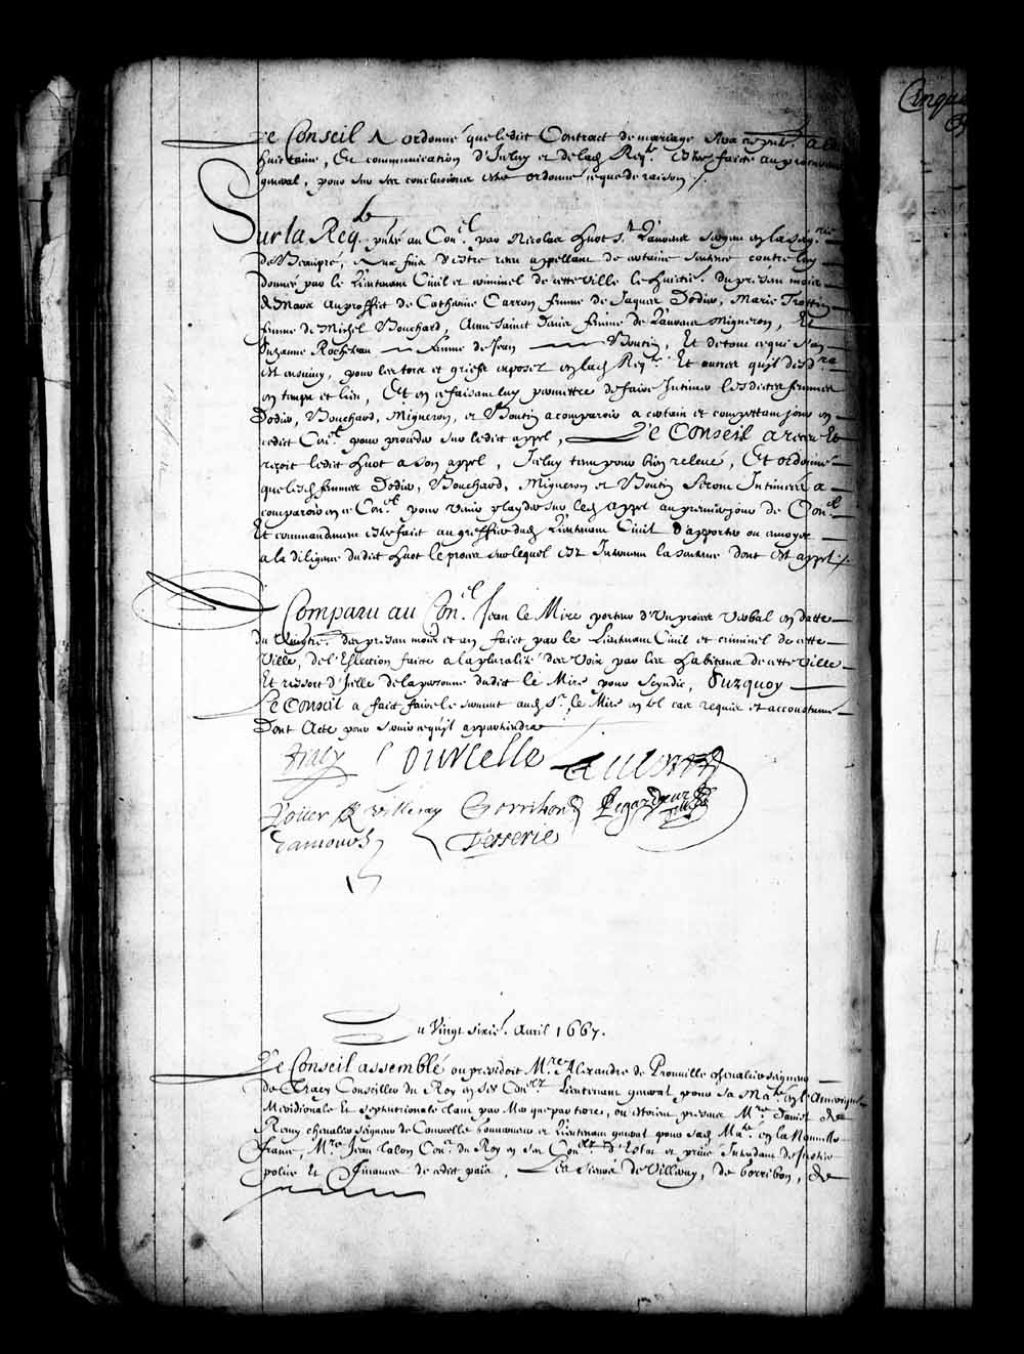 Le Conseil A ordonné que ledit Contract de mariage sera
huictaine, Et communication d'Iceluy et de lad. Reqte. estre faicte au procureur
general, pour sur ses conclusions estre ordonné ce que de raison ./.
Sur la Reqte. pnte. au Conel. par Nicolas Huot St. Laurens
de Beaupré, Aux fins d'estre receu appellant de certaine sentence contre luy
donnée par le Lieutenant Civil et criminel de cette Ville le huictie. du present mois
de Mars au proffit de Catharine Carron femme de Jaques Dodier, Marie Trottin
femme de Michel Bouchard, Anne Sainct Denis femme de Laurens Migneron, Et
Suzanne Rocheteau femme de Jean Boutin, Et de tout ce qui s'en
est ensuivy, pour les torts et griefs exposez en lad. Reqte. Et autres qu'il desd.ra
en temps et lieu, Et en ce faisant luy permettre de faire Intimer lesdictes femmes
Dodier, Bouchard, Migneron, et Boutin a comparoir a certain et compettant jour en
cedict Conel. pour proceder sur ledict appel, Le Conseil a receu Et
reçoit ledict Huot a son appel, Iceluy tenu pour bien relevé, Et ordonne
que lesd. femmes Dodier, Bouchard, Migneron et Boutin seront Intimées a
comparoir en ce Conel. pour venir playder sur led. appel au premier jour de Conel.
Et commandement estre fait au greffier dud. Lieutenant Civil d'apporter ou envoyer
a la diligence dudict Huot le proces sur lequel est Intervenu la sentence dont est appel ./.
Comparu au Conel. Jean le Mire porteur d'Un proces Verbal en datte
du des presans mois et an faict par le Lieutenant Civil et criminel de cette
Ville, de l'Eslection faicte a la pluralité des Voix par les Habitans de cette Ville
Et ressort d'Icelle de la personne dudict le Mire pour Scyndic, Surquoy
Le Conseil a fait faire le serment aud. Sr. le Mire en tel cas requis et accoustumé
Dont Acte pour servir ce qu'il appartiendra
Tracy Courcelle
Rouer de Villeray Gorribon
Damours Tesserie
Du Vingt sixie. Avril 1667.
Le Conseil assemblé ou presidoit Mre. Alexandre de Prouville chevalier seigneur
de Tracy Conseiller du Roy en ses Conels. Lieutenant general pour Sa Maté. en l'Amerique
Meridionale Et Septentrionale tant par Mer que par terre, ou estoient presens Mre. Daniel de
Remy chevalier seigneur de Courcelle Gouverneur et Lieutenant general pour sad. Maté. en la Nouvelle
france, Mre. Jean Talon Coner. du Roy en ses Conels. d'Estat et privé Intendant de justice
police Et Finances de cedit païs, Les Sieurs de Villeray, de Gorribon, de